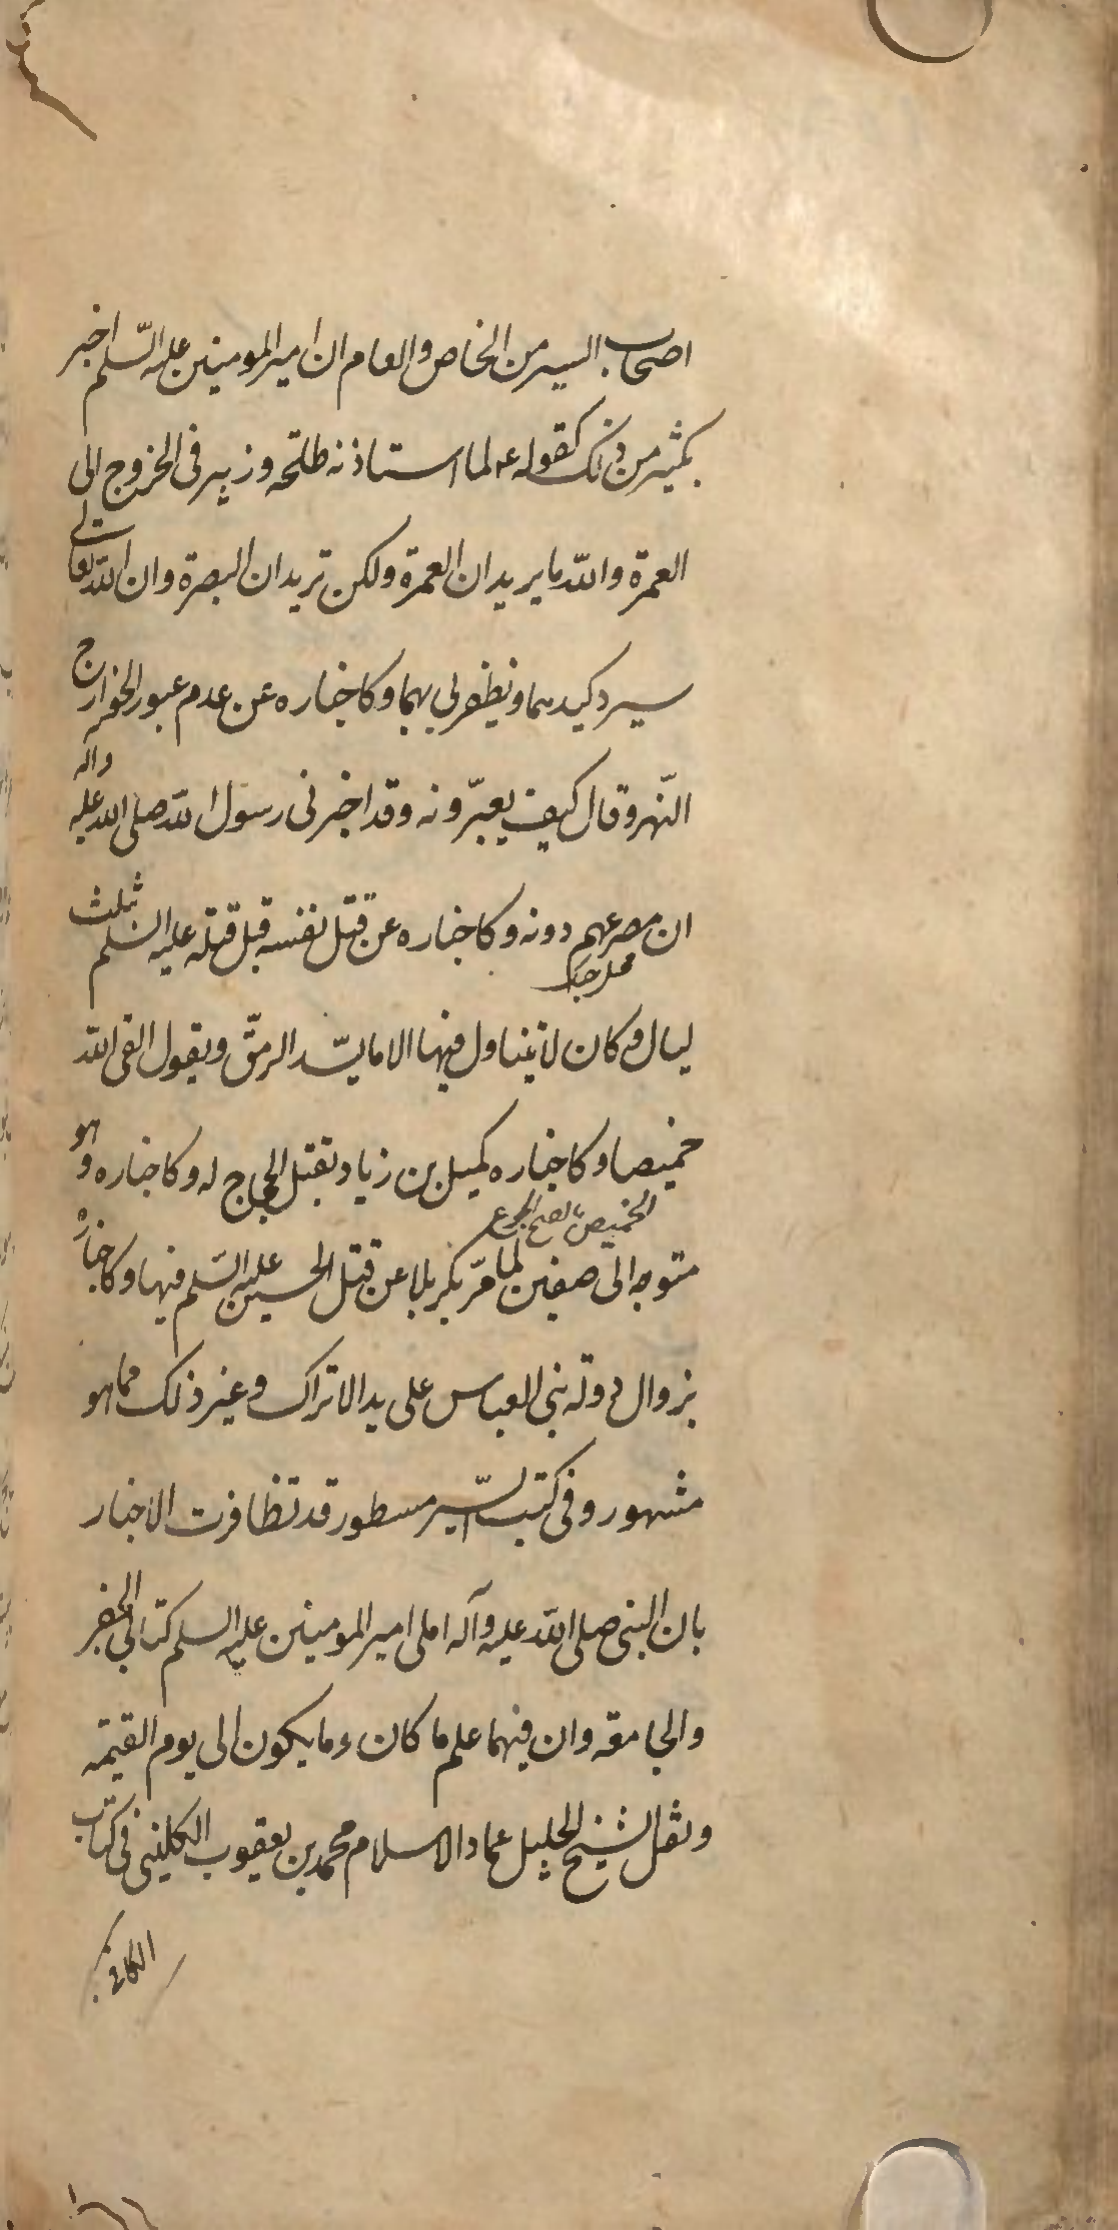 اصحاب السير من الخاص والعام ان امير المومنين عليه السّلم اخبر
بكثير من ذلك كقوله ع لما استاذنه طلحه وزبير فى الخروج الى
العمرة والله ما يريدان العمرة ولكن تريدان البصرة وان الله تعالى
سيرد كيدهما ويظفرنى بهما وكاخباره عن عدم عبور الخوارج
النّهر وقال كيف يعبّرونه وقد اخبرنى رسول الله صلى الله عليه وآله
ان مصرعهم دونه وكاخباره عن قتل نفسه قبل قتله عليه السلم بثلث
ليال وكان لا يتناول فيها الا ما يسّد الرمق ويقول القى الله
خميصا وكاخباره كميل بن زياد بقتل الحجاج له وكاخباره وهو
الخميص بالفتح الجوع
متوجه الى صفين لما مرّ بكربلا عن قتل الحسين عليه السّلم فيها وكاخباره
بزوال دولة بنى العباس على يد الاتراك وغير ذلك مما هو
مشهور وفى كتب السّير مسطور قد تظافرت الاخبار
بان النبى صلى الله عليه وآله املى امير المومنين عليه السلم كتابى الجفر
والجامعه وان فيهما علم ما كان وما يكون الى يوم القيمة
ونقل الشيخ الجليل عماد الاسلام محمد بن يعقوب الكلينى فى كتاب
الكافى